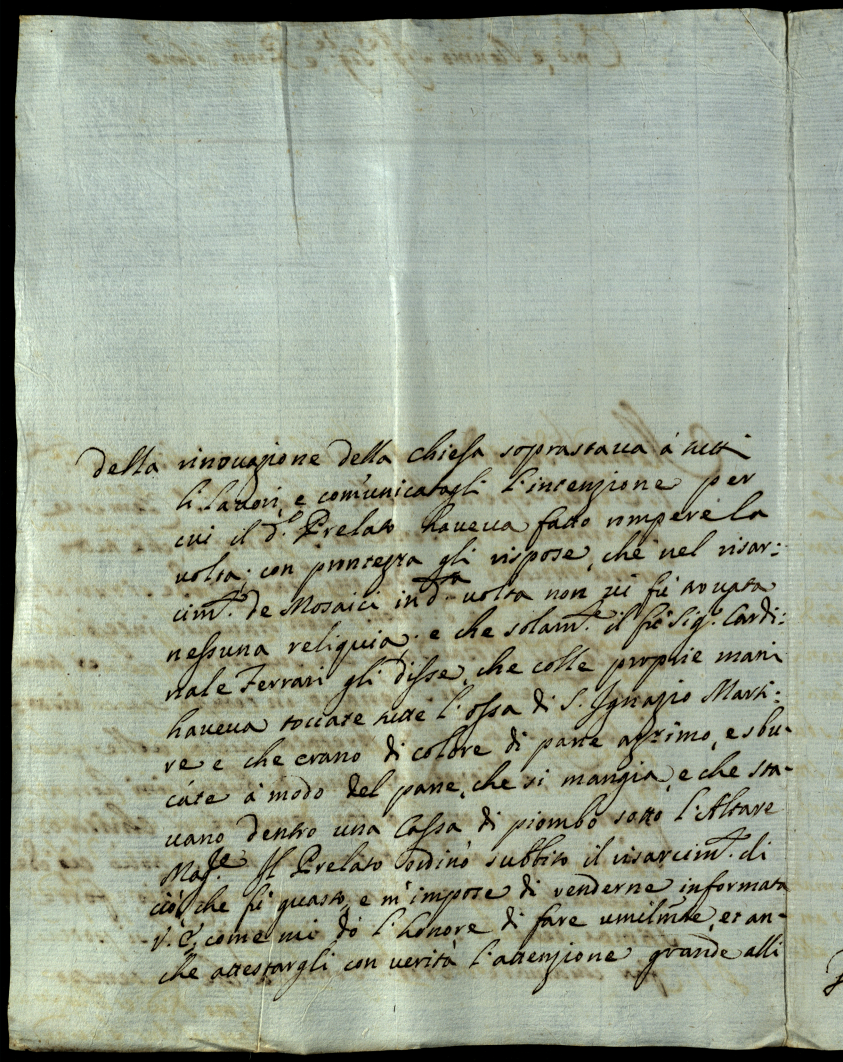 della rinovazione della chiesa soprastaua à tutti
li lauori, e communicatogli l'intenzione per
cui il d.º Prelato haueua fatto rompere la
uolta; con prontezza gli rispose, che nel risar:
cim.to de Mosaici in d.ta uolta non ui fù trouata
nessuna reliquia. e che solam.te il fù Sig.r Cardi:
nale Ferrari gli disse, che colle proprie mani
haueua toccate tutte l'ossa di S. Ignazio Marti:
re e che erano di colore di pane azimo, e sbu-
cate à modo del pane, che si mangia, e che sta-
uano dentro una Cassa di piombo sotto l'Altare
Mag.re Il Prelato ordinò subbito il risarcim.to di
ciò, che fù guasto, e m'impose di renderne informata
V. E., come mi dò l'honore di fare umilmte, et an-
che attestargli con uerità l'attenzione grande alli